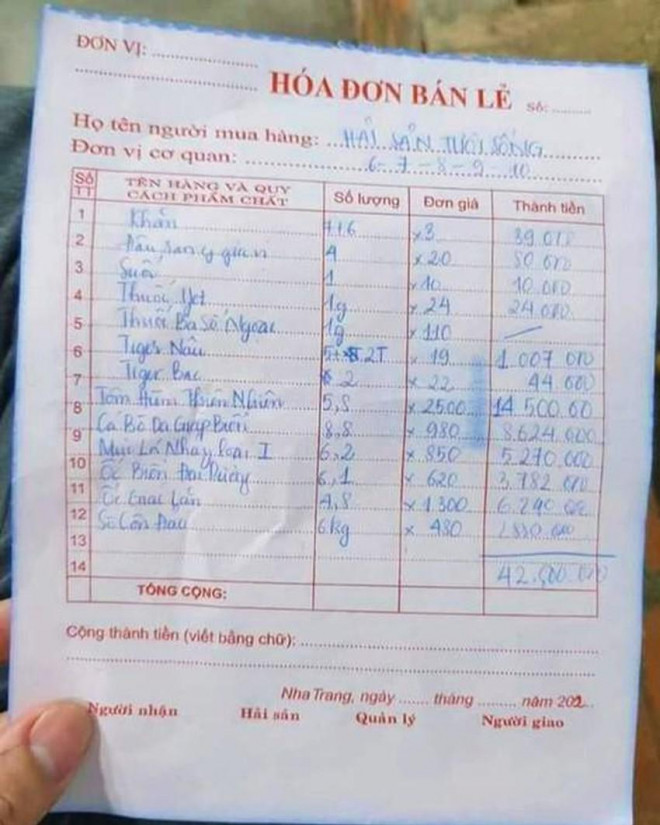 ĐƠN VỊ: ....................
HÓA ĐƠN BÁN LẺ Số: ........
Họ tên người mua hàng: HẢI SẢN TƯƠI SỐNG
Đơn vị cơ quan: 6-7-8-9-10
Số TT TÊN HÀNG VÀ QUY CÁCH PHẨM CHẤT Số lượng Đơn giá Thành tiền
1 Khăn x3 39.000
2 4 x20 80.000
3 Suối 1 x10 10.000
4 Thuốc 1g x24 24.000
5 Thuốc Ba Số Ngoại 1g x110
6 Tiger Nâu x 19 1.007.000
7 Tiger Bạc 2 x 22 44.000
8 Tôm Hùm Thiên Nhiên 5,8 x 2500 14.500.00
9 Cá Bò Da Giáp Biển 8,8 x 980 8.624.000
10 6,2 x 850 5.270.000
11 Ốc Biển 6,1 x 620 3.782.000
12 Ốc 4,8 x 1300 6.240.000
13 6kg x 480
14 42.500.000
TỔNG CỘNG:
Cộng thành tiền (viết bằng chữ): ....................
Nha Trang, ngày ....... tháng ......... năm 202...
Người nhận Hải sản Quản lý Người giao